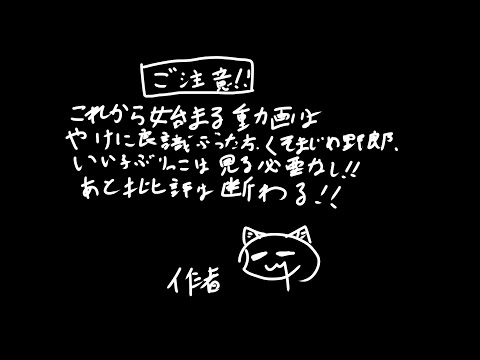 ご注意!!
これから始まる動画は
やけに良識ぶった方、くそまじめ野郎、
いい子ぶりっこは見る必要なし!!
あと批評は断わる!!
作者